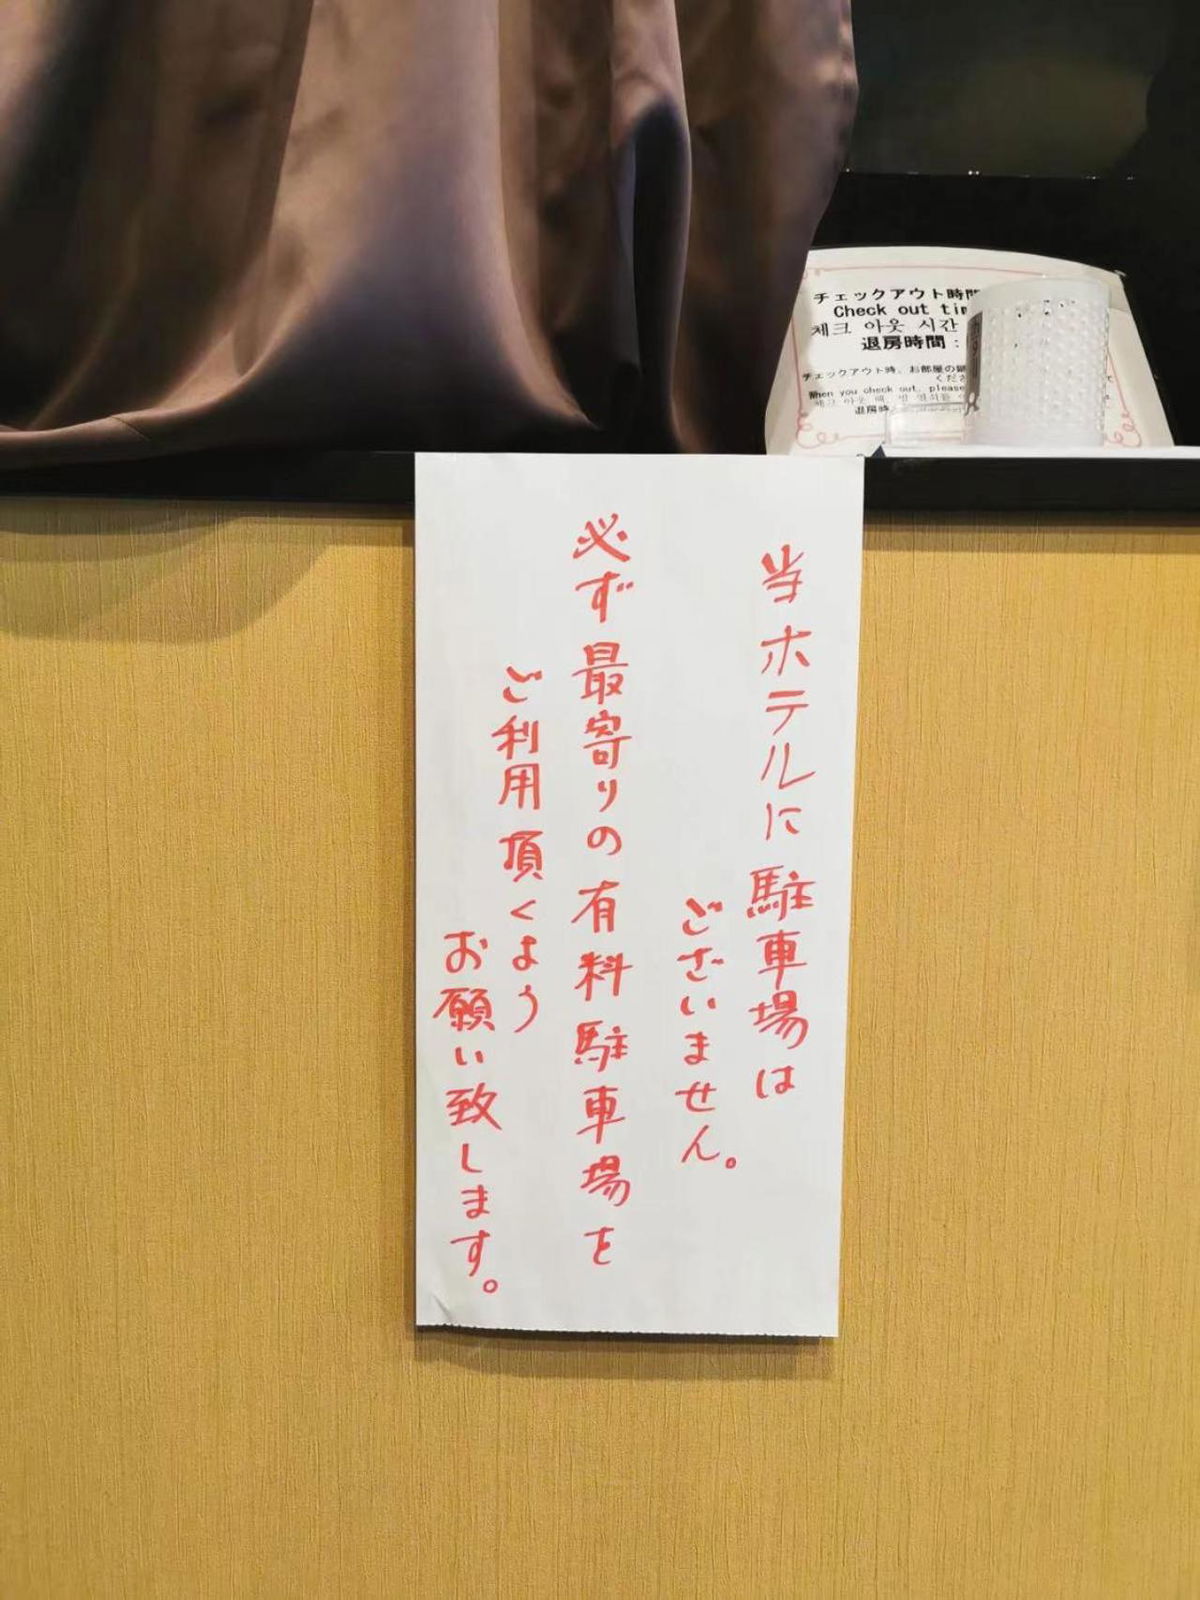 当ホテルに駐車場は
ございません。
必ず最寄りの有料駐車場を
ご利用頂くよう
お願い致します。
チェックアウト時間
Check out
체크 아웃 시간
退房時間：
チェックアウト時、お部屋の
When you check out, please
退房時